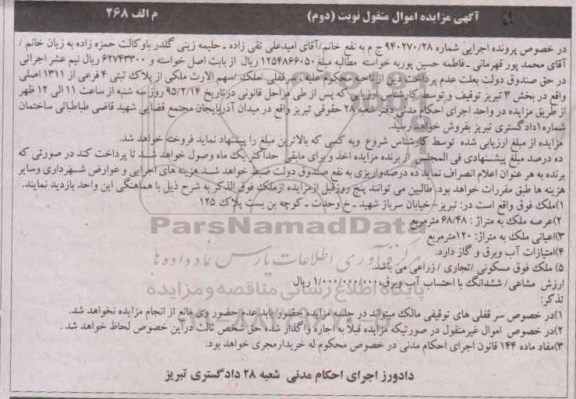 آگهی مزایده اموال منقول نوبت (دوم)
م الف ۲۶۸
در خصوص پرونده اجرایی شماره ۹۴۰۲۷۰/۲۸ ج م به نفع خانم/آقای امیدعلی تقی زاده ـ حلیمه زینی گلدر باوکالت حمزه زاده به زیان خانم /
آقای محمد پور قهرمانی ـ فاطمه حسین پوریه خواسته مطالبه مبلغ ۱۲۵۴۸۶۶۰۵۰ ریال از بابت اصل خواسته و ۶۲۷۴۳۳۰۰ ریال نیم عشر اجرائی
در حق صندوق دولت بعلت عدم پرداخت دین از ناحیه محکوم علیه سرقفلی /ملک /سهم الارث ملکی از پلاک ثبتی ۴ فرعی از ۱۳۱۱ اصلی
واقع در بخش ۳ تبریز توقیف و توسط کارشناس ارزیابی که پس از طی مراحل قانونی درتاریخ ۹۵/۲/۱۴ روز سه شنبه از ساعت ۱۱ الی ۱۲ ظهر
از طریق مزایده در واحد اجرای احکام مدنی دفتر شعبه ۲۸ حقوقی تبریز واقع در میدان آذربایجان مجتمع قضایی شهید قاضی طباطبائی ساختمان
شماره ۱دادگستری تبریز بفروش خواهد رسید.
مزایده از مبلغ ارزیابی شده توسط کارشناس شروع وبه کسی که بالاترین مبلغ را پیشنهاد نماید فروخته خواهد شد.
ده درصد مبلغ پیشنهادی فی المجلس از برنده مزایده اخذ و برای مابقی حداکثر یک ماه وصول خواهد شد تا پرداخت کند در صورتی که
برنده به هر عنوان اعلام انصراف نماید ده درصدواریزی به نفع صندوق دولت ضبط خواهد شد.هزینه های اجرایی و عوارض شهرداری وسایر
هزینه ها طبق مقررات خواهد بود. طالبین می توانند پنج روزقبل ازمزایده ازملک فوق الذکر به شرح ذیل با هماهنگی این واحد بازدید نمایند.
۱)ملک فوق واقع است در: تبریز ـ خیابان سرباز شهید ـ خ وحدت ـ کوچه بن بست پلاک ۱۲۵
۲)عرصه ملک به متراژ : ۶۸/۴۸ مترمربع
۳)اعیانی ملک به متراژ: ۱۲۰مترمربع
۴)امتیازات آب وبرق و گاز دارد.
۵) ملک فوق مسکونی /تجاری / زراعی می باشد.
ارزش مشاعی/ ششدانگ با احتساب آب وبرق: ۱/۰۰۰/۰۰۰/۰۰۰ ریال
تذکر:
۱)در خصوص سر قفلی های توقیفی مالک میتواند در جلسه مزایده حضور یابد عدم حضور وی مانع از انجام مزایده نخواهد شد.
۲)در خصوص اموال غیرمنقول در صورتیکه مزایده قبلاً به اجاره واگذار شده حق شخص ثالث دراین خصوص لحاظ خواهد شد .
۳)مفاد ماده ۱۴۴ قانون اجرای احکام مدنی در خصوص محکوم له خریدارمجری خواهد بود.
دادورز اجرای احکام مدنی شعبه ۲۸ دادگستری تبریز
ParsNamadData